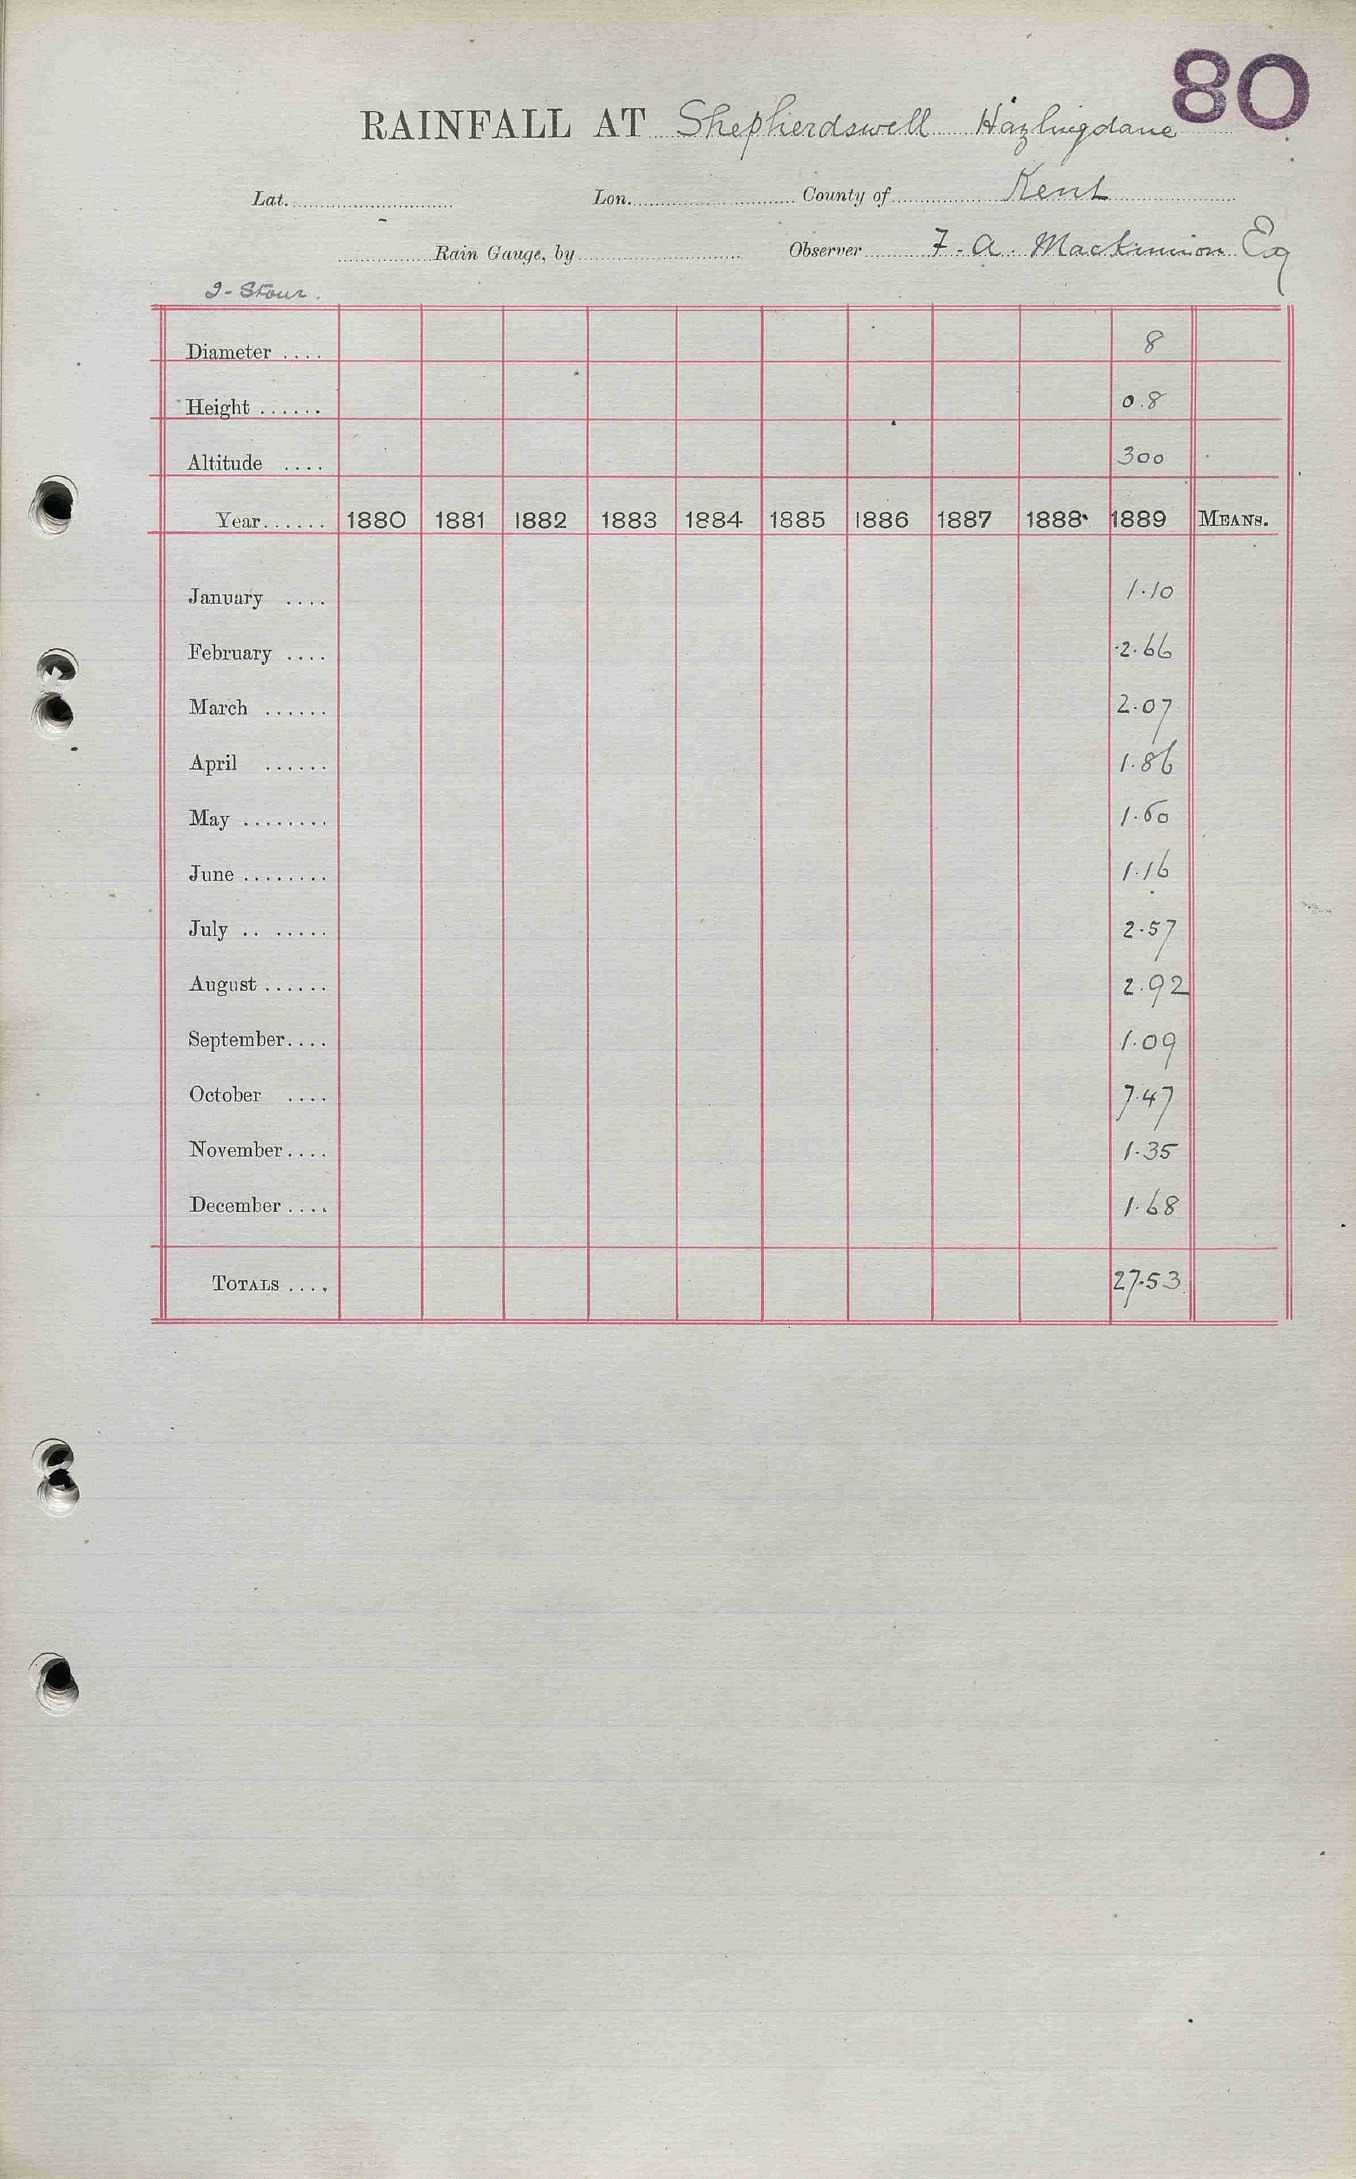 80
RAINFALL AT Shepherdswell Hazlingdane
Lat. Lon. County of Kent
Rain Gauge, by Observer F. A. Mackinnon Esq
2 - Stour.
Diameter .... 8
Height ...... 0.8
Altitude .... 300
Year...... 1880 1881 1882 1883 1884 1885 1886 1887 1888 1889 MEANS.
January .... 1.10
February .... 2.66
March ...... 2.07
April ...... 1.86
May ........ 1.60
June ........ 1.16
July .. ..... 2.57
August ...... 2.92
September.... 1.09
October .... 7.47
November.... 1.35
December .... 1.68
TOTALS .... 27.53